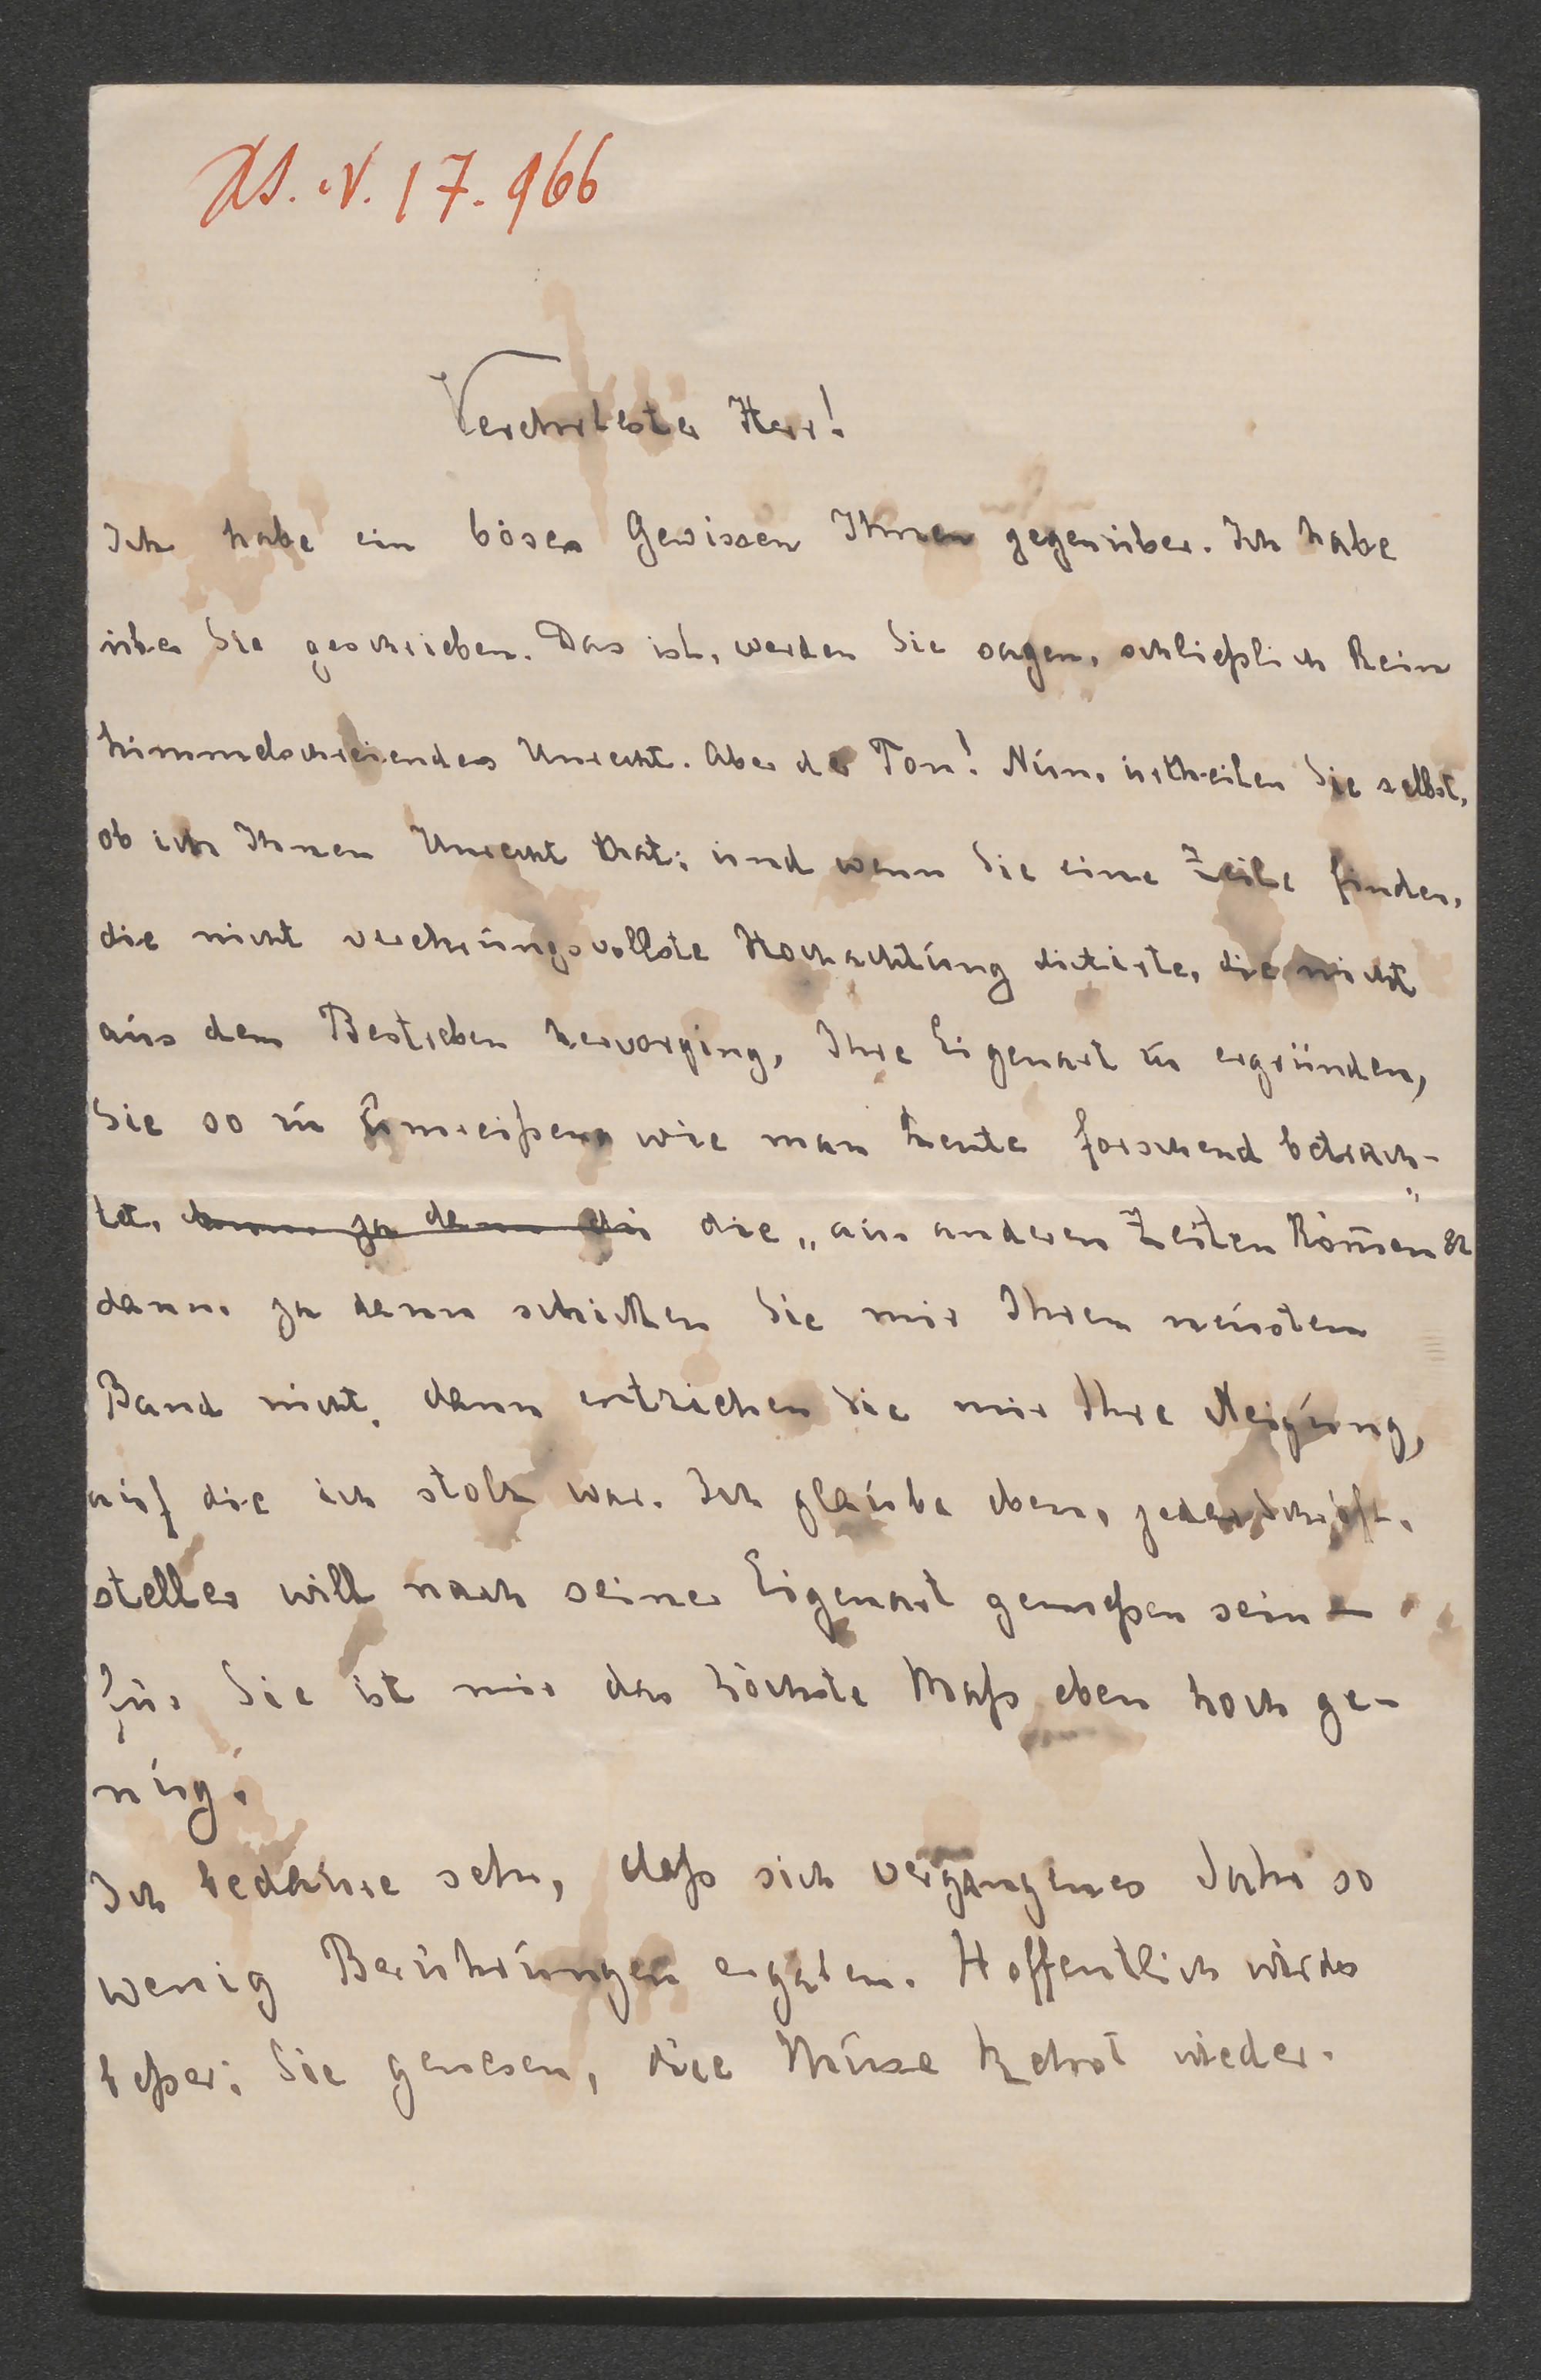 I.N. 17.966
Verehrtester Herr!
Ich habe ein böses Gewissen Ihnen gegenüber. Ich habe
über Sie geschrieben. Das ist, werden Sie sagen, schließlich kein
himmelschreiendes Unrecht. Aber der Ton! Nun, urtheilen Sie selbst,
ob ich Ihnen Unrecht that; und wenn Sie eine Zeile finden,
die nicht verehrungsvollste Hochachtung dictirte, die nicht
aus dem Bestreben hervorging, Ihre Eigenart zu ergründen,
Sie so zu umreißen wie man Leute forschend betrach-
tet, dann ja dann die „aus anderen Zeiten kom̄en“
dann, ja dann schicken Sie mir Ihren neusten
Band nicht, dann entziehen Sie mir Ihre Neigung,
auf die ich stolz war. Ich glaube eben, jeder Schrift-
steller will nach seiner Eigenart gemeßen sein –
für Sie ist mir das höchste Maß eben hoch ge-
nug.
Ich bedaure sehr, daß sich vergangenes Jahr so
wenig Berührungen ergaben. Hoffentlich wird es
beßer; Sie genesen, die Muse kehrt wieder.